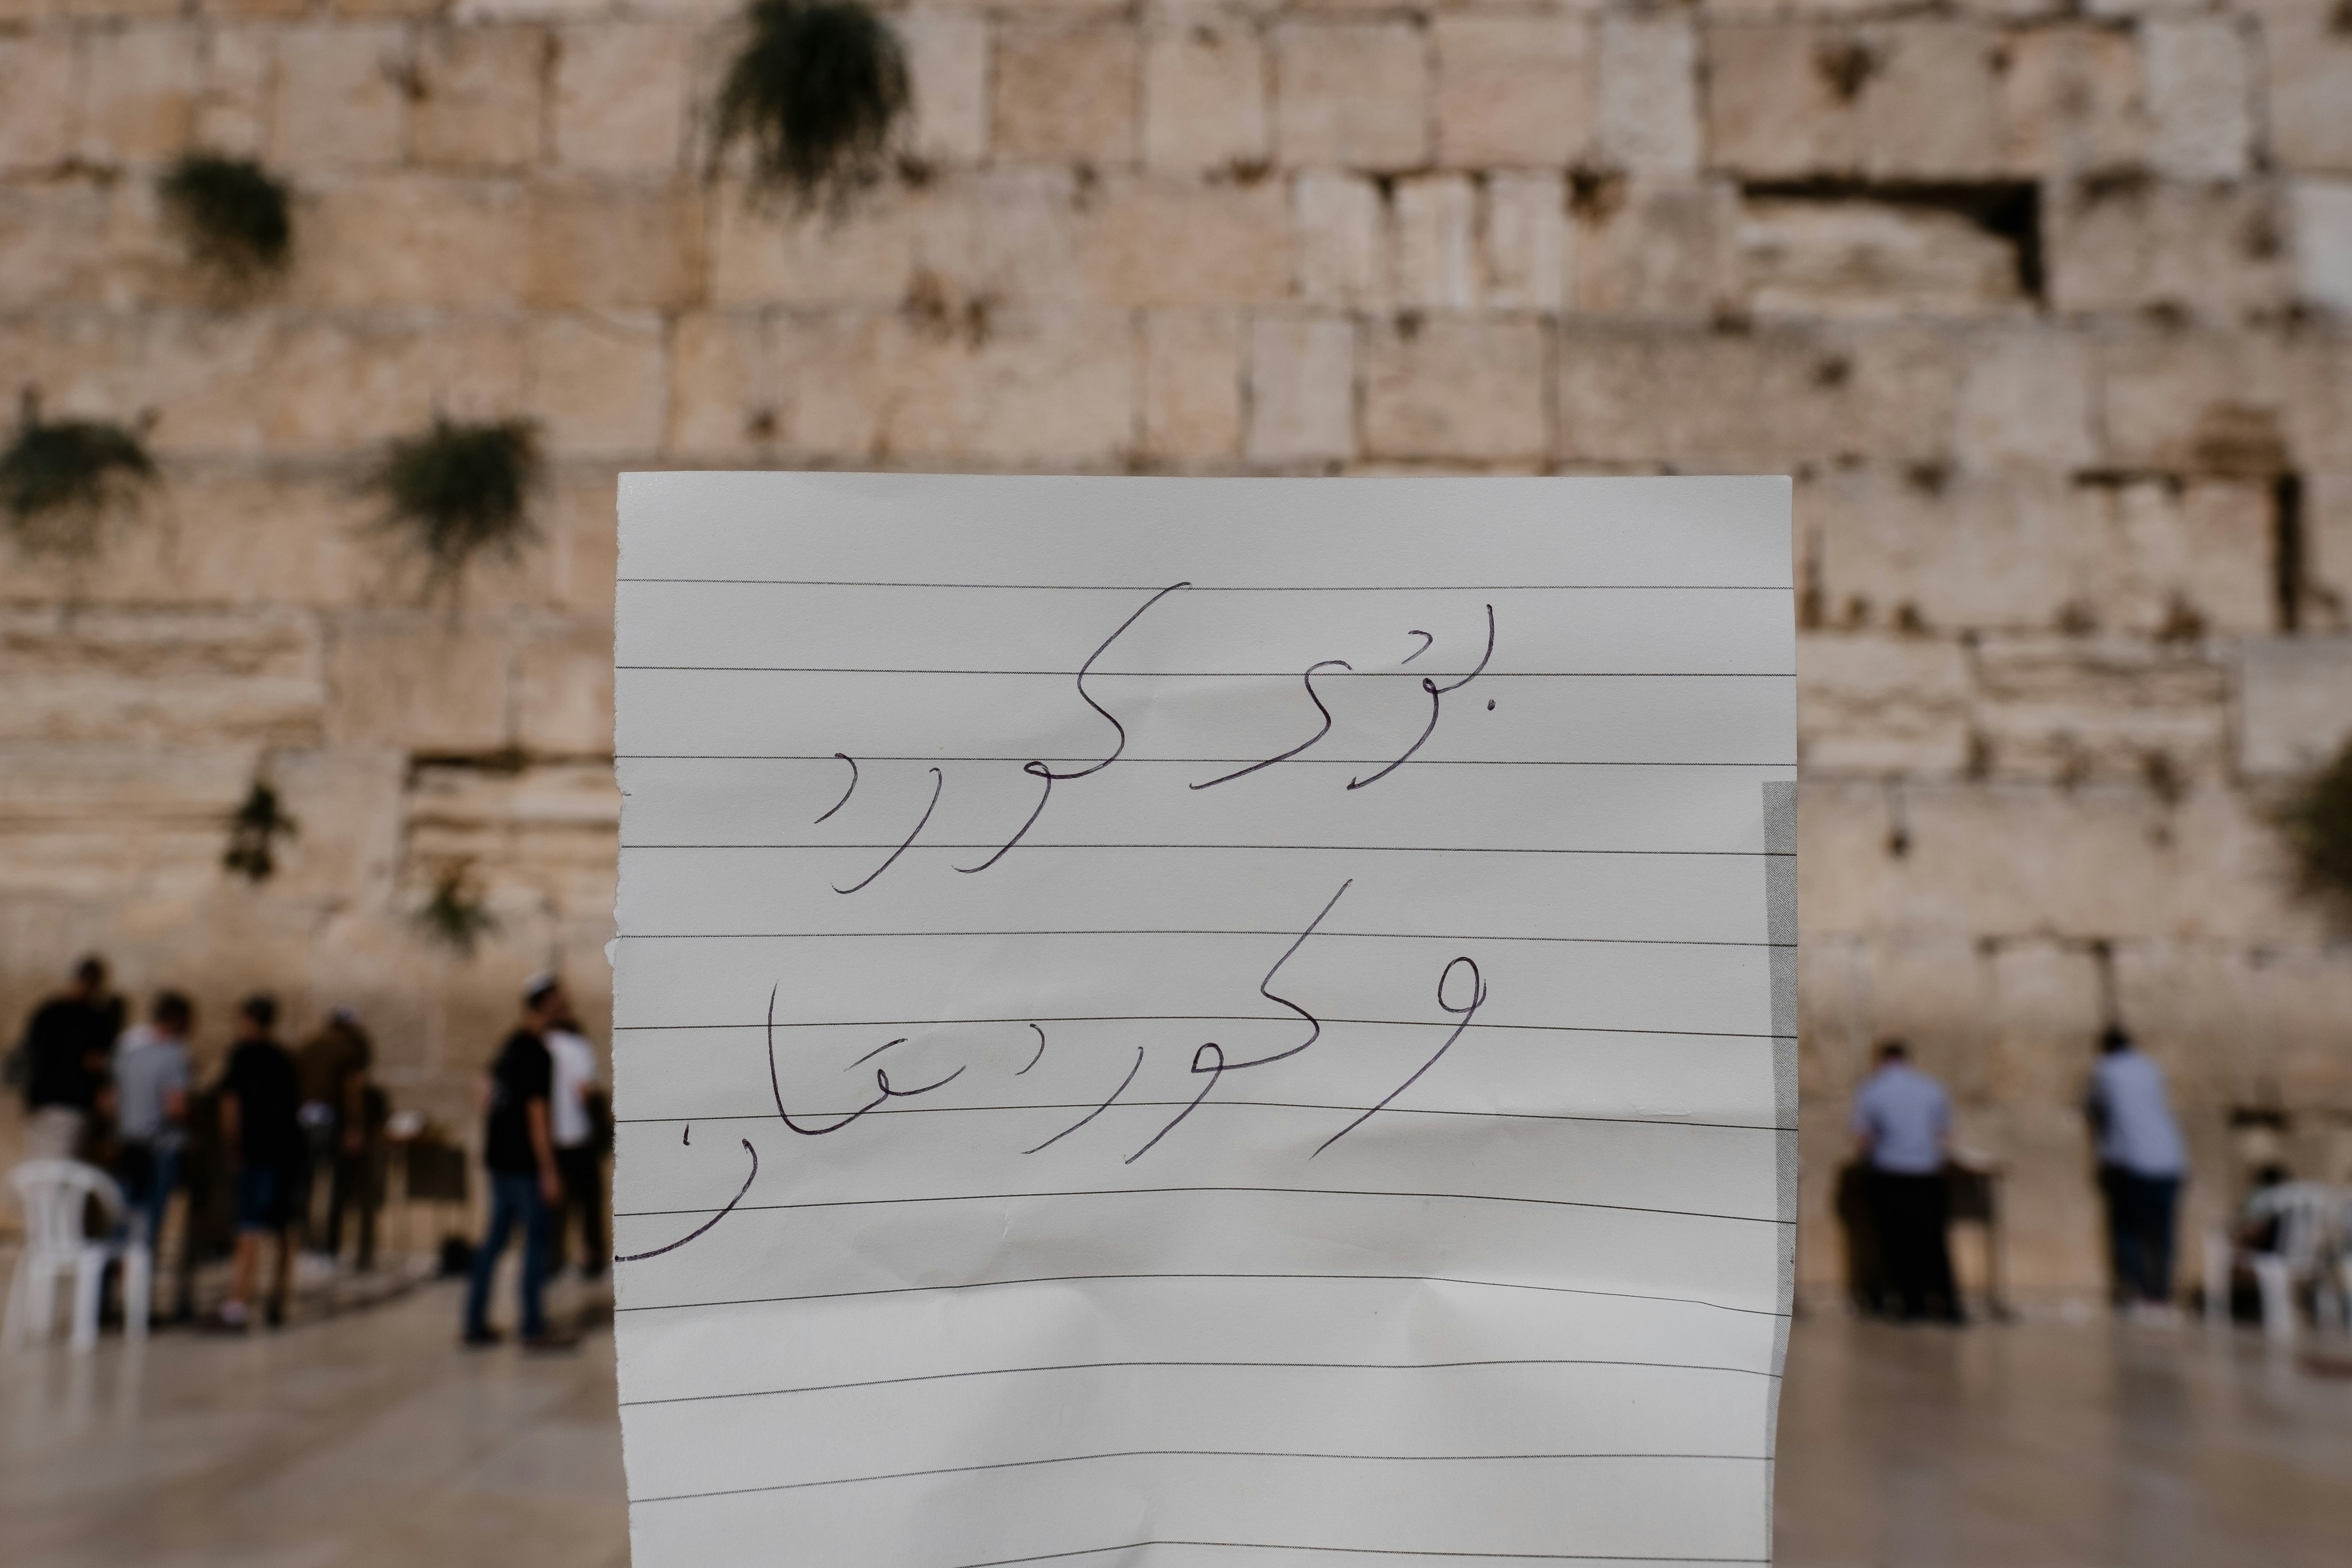 بژی کورد
و کوردستان